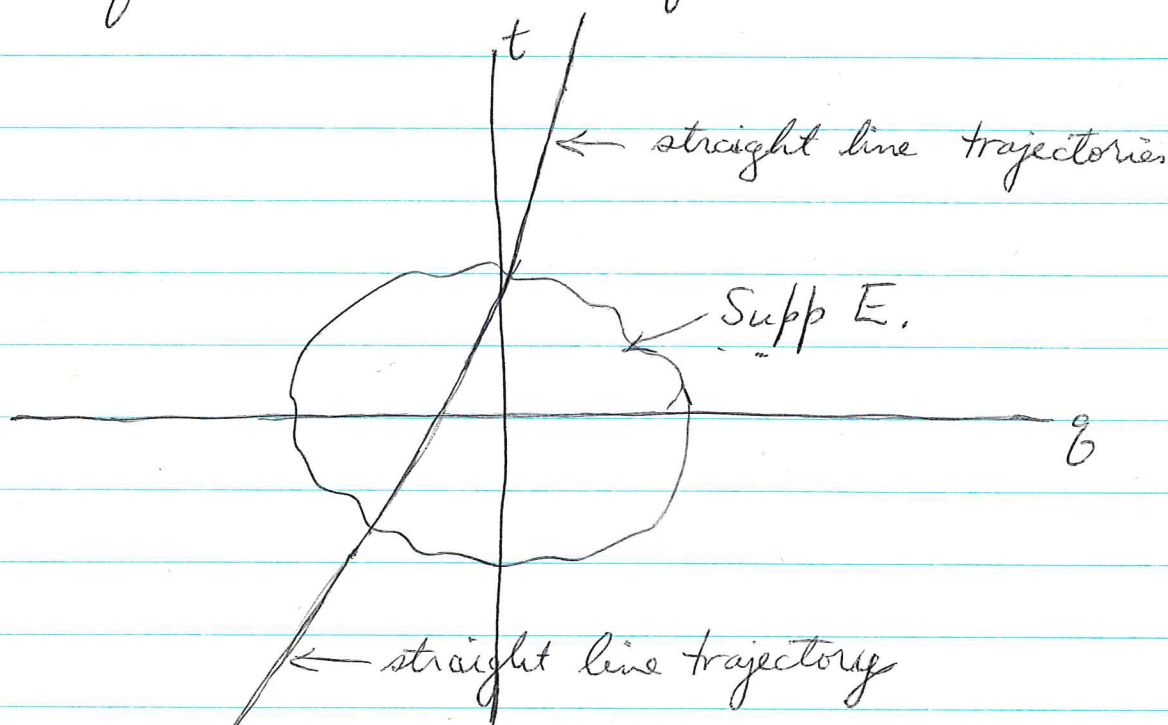 t
← straight line trajectories
Supp E.
q
← straight line trajectory